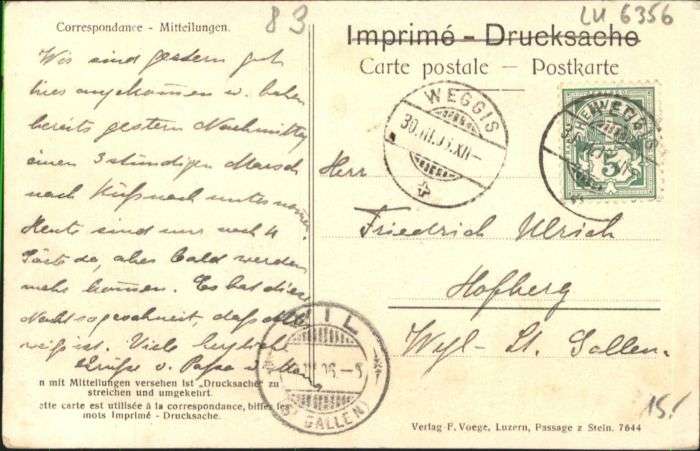 83
LU 6356
Correspondance - Mitteilungen.
Imprimé - Drucksache
Carte postale — Postkarte
Wir sind gestern gut
hier angekommen u. haben
bereits gestern Nachmittag
einen 3 stündigen Marsch
nach Küßnach unternommen.
Heute sind nur noch 4
Gäste da, aber bald werden
mehr kommen. Es hat diese
Nacht so geschneit, daß alles
weiß ist. Viele herzliche
Grüße v. Papa u. Mama
WEGGIS
30.III.06.XII-
WEGGIS
5
Herr
Friedrich Ulrich
Hofberg
Wyl - St. Gallen.
WIL
06.-5
(ST. GALLEN)
n mit Mitteilungen versehen ist „Drucksache" zu
streichen und umgekehrt.
ette carte est utilisée à la correspondance, biffer les
mots Imprimé - Drucksache.
15.!
Verlag-F. Voege, Luzern, Passage z Stein. 7644